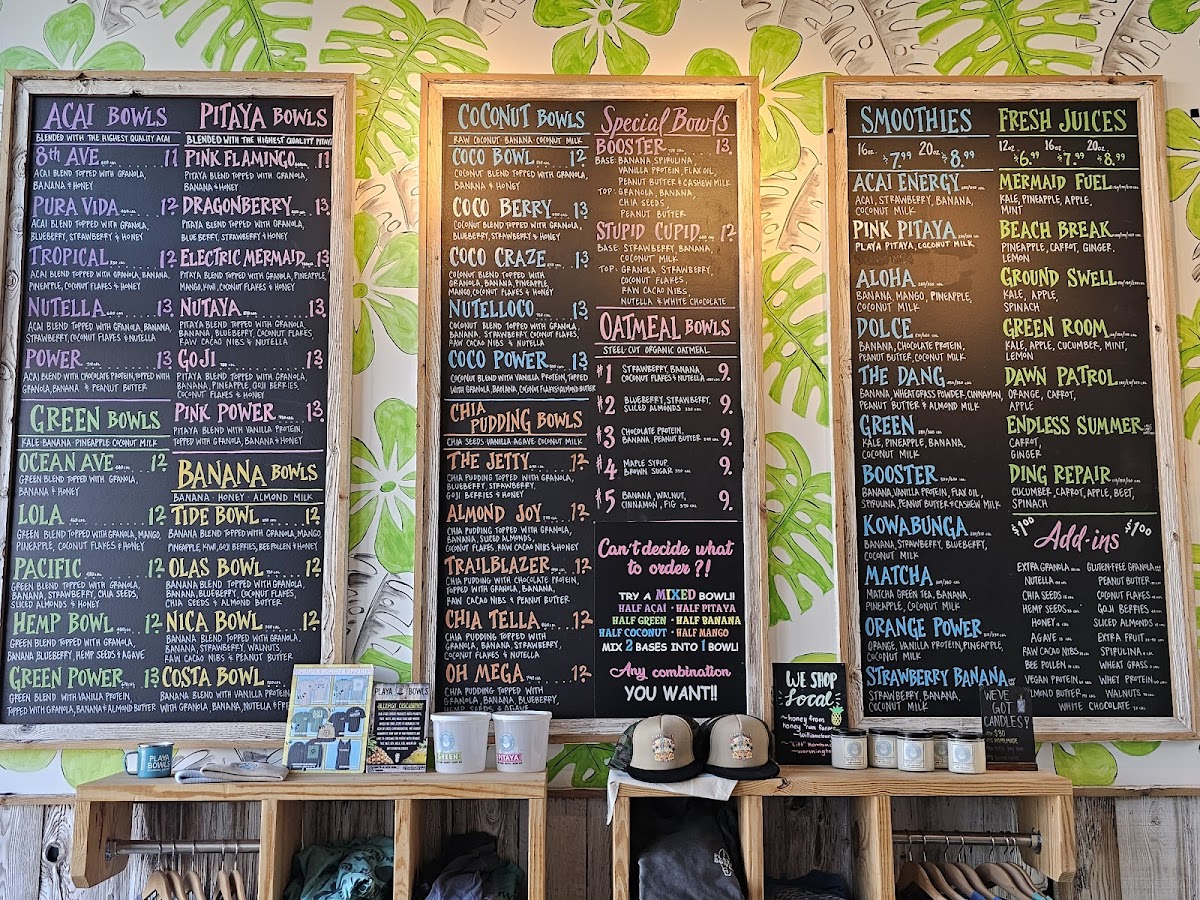 ACAI BOWLS
BLENDED WITH THE HIGHEST QUALITY ACAI
8th AVE 11
ACAI BLEND TOPPED WITH GRANOLA,
BANANA & HONEY
PURA VIDA 12
ACAI BLEND TOPPED WITH GRANOLA,
BLUEBERRY, STRAWBERRY & HONEY
TROPICAL 12
ACAI BLEND TOPPED WITH GRANOLA, BANANA,
PINEAPPLE, COCONUT FLAKES & HONEY
NUTELLA 13
ACAI BLEND TOPPED WITH GRANOLA, BANANA,
STRAWBERRY, COCONUT FLAKES & NUTELLA
POWER 13
ACAI BLEND WITH CHOCOLATE PROTEIN, TOPPED WITH
GRANOLA, BANANA & PEANUT BUTTER
GREEN BOWLS
KALE·BANANA·PINEAPPLE·COCONUT MILK
OCEAN AVE 12
GREEN BLEND TOPPED WITH GRANOLA,
BANANA & HONEY
LOLA 12
GREEN BLEND TOPPED WITH GRANOLA, MANGO,
PINEAPPLE, COCONUT FLAKES & HONEY
PACIFIC 12
GREEN BLEND TOPPED WITH GRANOLA,
BANANA, STRAWBERRY, CHIA SEEDS,
SLICED ALMONDS & HONEY
HEMP BOWL 12
GREEN BLEND TOPPED WITH GRANOLA,
BANANA, BLUEBERRY, HEMP SEEDS & AGAVE
GREEN POWER 13
GREEN BLEND WITH VANILLA PROTEIN,
TOPPED WITH GRANOLA, BANANA & ALMOND BUTTER
PITAYA BOWLS
BLENDED WITH THE HIGHEST QUALITY PITAYA
PINK FLAMINGO 11
PITAYA BLEND TOPPED WITH GRANOLA,
BANANA & HONEY
DRAGONBERRY 13
PITAYA BLEND TOPPED WITH GRANOLA,
BLUEBERRY, STRAWBERRY & HONEY
ELECTRIC MERMAID 13
PITAYA BLEND TOPPED WITH GRANOLA, PINEAPPLE,
MANGO, KIWI, COCONUT FLAKES & HONEY
NUTAYA 13
PITAYA BLEND TOPPED WITH GRANOLA,
BANANA, BLUEBERRY, COCONUT FLAKES,
RAW CACAO NIBS & NUTELLA
GOJI 13
PITAYA BLEND TOPPED WITH GRANOLA,
BANANA, PINEAPPLE, GOJI BERRIES,
COCONUT FLAKES & HONEY
PINK POWER 13
PITAYA BLEND WITH VANILLA PROTEIN,
TOPPED WITH GRANOLA, BANANA & HONEY
BANANA BOWLS
BANANA · HONEY · ALMOND MILK
TIDE BOWL 12
BANANA BLEND TOPPED WITH GRANOLA, MANGO,
PINEAPPLE, KIWI, GOJI BERRIES, BEE POLLEN & HONEY
OLAS BOWL 12
BANANA BLEND TOPPED WITH GRANOLA,
BANANA, BLUEBERRY, COCONUT FLAKES,
CHIA SEEDS & ALMOND BUTTER
NICA BOWL 12
BANANA BLEND TOPPED WITH GRANOLA,
BANANA, STRAWBERRY, WALNUTS,
RAW CACAO NIBS & PEANUT BUTTER
COSTA BOWL 12
BANANA BLEND WITH VANILLA PROTEIN,
TOPPED WITH GRANOLA, BANANA,
COCONUT BOWLS
RAW COCONUT·BANANA·COCONUT MILK
COCO BOWL 12
COCONUT BLEND TOPPED WITH GRANOLA,
BANANA & HONEY
COCO BERRY 13
COCONUT BLEND TOPPED WITH GRANOLA,
BLUEBERRY, STRAWBERRY & HONEY
COCO CRAZE 13
COCONUT BLEND TOPPED WITH
GRANOLA, BANANA, PINEAPPLE,
MANGO, COCONUT FLAKES & HONEY
NUTELLOCO 13
COCONUT BLEND TOPPED WITH GRANOLA,
BANANA, STRAWBERRY, COCONUT FLAKES,
RAW CACAO NIBS & NUTELLA
COCO POWER 13
COCONUT BLEND WITH VANILLA PROTEIN, TOPPED
WITH GRANOLA, BANANA, COCONUT FLAKES & ALMOND BUTTER
CHIA PUDDING BOWLS
CHIA SEEDS·VANILLA·AGAVE·COCONUT MILK
THE JETTY 12
CHIA PUDDING TOPPED WITH GRANOLA,
BLUEBERRY, STRAWBERRY,
GOJI BERRIES & HONEY
ALMOND JOY 12
CHIA PUDDING TOPPED WITH GRANOLA,
BANANA, SLICED ALMONDS,
COCONUT FLAKES, RAW CACAO NIBS & HONEY
TRAILBLAZER 12
CHIA PUDDING WITH CHOCOLATE PROTEIN,
TOPPED WITH GRANOLA, BANANA,
RAW CACAO NIBS & PEANUT BUTTER
CHIA TELLA 12
CHIA PUDDING TOPPED WITH
GRANOLA, BANANA, STRAWBERRY,
COCONUT FLAKES & NUTELLA
OH MEGA 12
CHIA PUDDING TOPPED WITH
GRANOLA, BANANA, BLUEBERRY,
HEMP SEEDS & AGAVE
Special Bowls
BOOSTER 13
BASE: BANANA, SPIRULINA,
VANILLA PROTEIN, FLAX OIL,
PEANUT BUTTER & CASHEW MILK
TOP: GRANOLA, BANANA,
CHIA SEEDS,
PEANUT BUTTER
STUPID CUPID 12
BASE: STRAWBERRY, BANANA,
COCONUT MILK
TOP: GRANOLA, STRAWBERRY,
COCONUT FLAKES,
RAW CACAO NIBS,
NUTELLA & WHITE CHOCOLATE
OATMEAL BOWLS
STEEL-CUT ORGANIC OATMEAL
#1 STRAWBERRY, BANANA,
COCONUT FLAKES & NUTELLA 9.
#2 BLUEBERRY, STRAWBERRY,
SLICED ALMONDS 9.
#3 CHOCOLATE PROTEIN,
BANANA, PEANUT BUTTER 9.
#4 MAPLE SYRUP,
BROWN SUGAR 9.
#5 BANANA, WALNUT,
CINNAMON, FIG 9.
Can't decide what
to order?!
TRY A MIXED BOWL!!
HALF AÇAI · HALF PITAYA
HALF GREEN · HALF BANANA
HALF COCONUT · HALF MANGO
MIX 2 BASES INTO 1 BOWL!
Any combination
YOU WANT!!
SMOOTHIES
16oz. $7.99 20oz. $8.99
ACAI ENERGY
ACAI, STRAWBERRY, BANANA,
COCONUT MILK
PINK PITAYA
PLAYA PITAYA, COCONUT MILK
ALOHA
BANANA, MANGO, PINEAPPLE,
COCONUT MILK
DOLCE
BANANA, CHOCOLATE PROTEIN,
PEANUT BUTTER, COCONUT MILK
THE DANG
BANANA, WHEATGRASS POWDER, CINNAMON,
PEANUT BUTTER & ALMOND MILK
GREEN
KALE, PINEAPPLE, BANANA,
COCONUT MILK
BOOSTER
BANANA, VANILLA PROTEIN, FLAX OIL,
SPIRULINA, PEANUT BUTTER & CASHEW MILK
KOWABUNGA
BANANA, STRAWBERRY, BLUEBERRY,
COCONUT MILK
MATCHA
MATCHA GREEN TEA, BANANA,
PINEAPPLE, COCONUT MILK
ORANGE POWER
ORANGE, VANILLA PROTEIN, PINEAPPLE,
COCONUT MILK
STRAWBERRY BANANA
STRAWBERRY, BANANA,
COCONUT MILK
FRESH JUICES
12oz $6.99 16oz $7.99 20oz $8.99
MERMAID FUEL
KALE, PINEAPPLE, APPLE,
MINT
BEACH BREAK
PINEAPPLE, CARROT, GINGER,
LEMON
GROUND SWELL
KALE, APPLE,
SPINACH
GREEN ROOM
KALE, APPLE, CUCUMBER, MINT,
LEMON
DAWN PATROL
ORANGE, CARROT,
APPLE
ENDLESS SUMMER
CARROT,
GINGER
DING REPAIR
CUCUMBER, CARROT, APPLE, BEET,
SPINACH
$1.00 Add-ins $1.00
EXTRA GRANOLA
NUTELLA
CHIA SEEDS
HEMP SEEDS
HONEY
AGAVE
RAW CACAO NIBS
BEE POLLEN
VEGAN PROTEIN
ALMOND BUTTER
GLUTEN-FREE GRANOLA
PEANUT BUTTER
COCONUT FLAKES
GOJI BERRIES
SLICED ALMONDS
EXTRA FRUIT
SPIRULINA
WHEAT GRASS
WHEY PROTEIN
WALNUTS
WHITE CHOCOLATE
PLAYA
BOWLS
PLAYA BOWLS
GREEN
PITAYA
WE SHOP
Local
~honey from
WE'VE
GOT
CANDLES!
$30